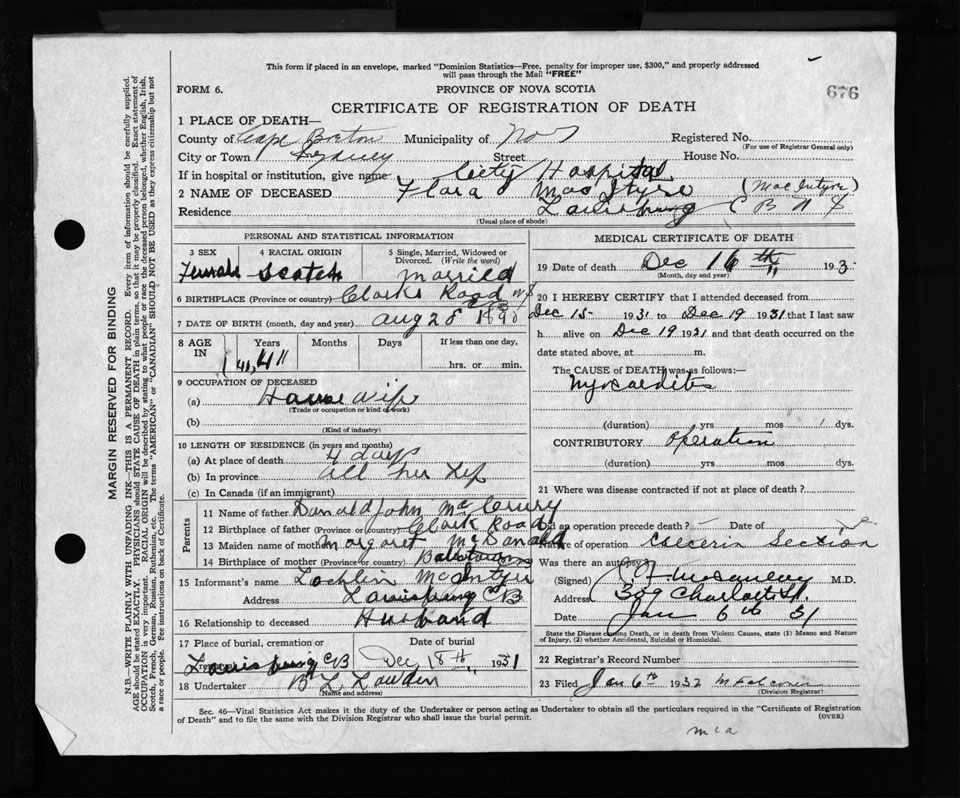 This form if placed in an envelope, marked "Dominion Statistics—Free, penalty for improper use, $300," and properly addressed
will pass through the Mail "FREE"
FORM 6.
PROVINCE OF NOVA SCOTIA
676
CERTIFICATE OF REGISTRATION OF DEATH
1 PLACE OF DEATH—
County of Cape Breton Municipality of Registered No.
(For use of Registrar General only)
City or Town Sydney Street House No.
If in hospital or institution, give name City Hospital
2 NAME OF DECEASED Flora Mac Ityre (MacIntyre)
Residence Louisburg C B
(Usual place of abode)
PERSONAL AND STATISTICAL INFORMATION
3 SEX Female
4 RACIAL ORIGIN Scotch
5 Single, Married, Widowed or Divorced. (Write the word) Married
6 BIRTHPLACE (Province or country) Clarks Road NS
7 DATE OF BIRTH (month, day and year) Aug 28 1890
8 AGE IN Years Months Days If less than one day, hrs. or min.
41
9 OCCUPATION OF DECEASED
(a) House wife
(Trade or occupation or kind of work)
(b)
(Kind of industry)
10 LENGTH OF RESIDENCE (in years and months)
(a) At place of death 4 days
(b) In province all her
(c) In Canada (if an immigrant)
Parents
11 Name of father Donald John
12 Birthplace of father (Province or country) Clark Road
13 Maiden name of mother Margaret McDonald
14 Birthplace of mother (Province or country)
15 Informant's name Lochlin McIntyre
Address Louisburg CB
16 Relationship to deceased Husband
17 Place of burial, cremation or Louisburg CB
Date of burial Dec 18th, 1931
18 Undertaker
(Name and address)
MEDICAL CERTIFICATE OF DEATH
19 Date of death Dec 16th 193
(Month, day and year)
20 I HEREBY CERTIFY that I attended deceased from
Dec 15 1931 to Dec 19 1931 that I last saw
h alive on Dec 19 1931 and that death occurred on the
date stated above, at m.
The CAUSE of DEATH was as follows:—
Myocarditis
(duration) yrs mos 1 dys.
CONTRIBUTORY operation
(duration) yrs mos. dys.
21 Where was disease contracted if not at place of death?
Did an operation precede death? Date of
Nature of operation Section
Was there an autopsy?
(Signed) M.D.
Address 309 Charlott St.
Date Jan 6th 31
State the Disease causing Death, or in death from Violent Causes, state (1) Means and Nature
of Injury, (2) whether Accidental, Suicidal or Homicidal.
22 Registrar's Record Number
23 Filed Jan 6th 1932
(Division Registrar)
Sec. 46—Vital Statistics Act makes it the duty of the Undertaker or person acting as Undertaker to obtain all the particulars required in the "Certificate of Registration
of Death" and to file the same with the Division Registrar who shall issue the burial permit.
(OVER)
MARGIN RESERVED FOR BINDING
N.B.—WRITE PLAINLY WITH UNFADING INK—THIS IS A PERMANENT RECORD. Every item of information should be carefully supplied.
AGE should be stated EXACTLY. PHYSICIANS should STATE CAUSE OF DEATH in plain terms, so that it may be properly classified. Exact statement of
OCCUPATION is very important. RACIAL ORIGIN will be described by stating to what people or race the deceased person belonged, whether English, Irish,
Scotch, French, German, Russian, Ruthenian, etc. The terms "AMERICAN" or "CANADIAN" SHOULD NOT BE USED as they express citizenship but not
a race or people. See instructions on back of Certificate.